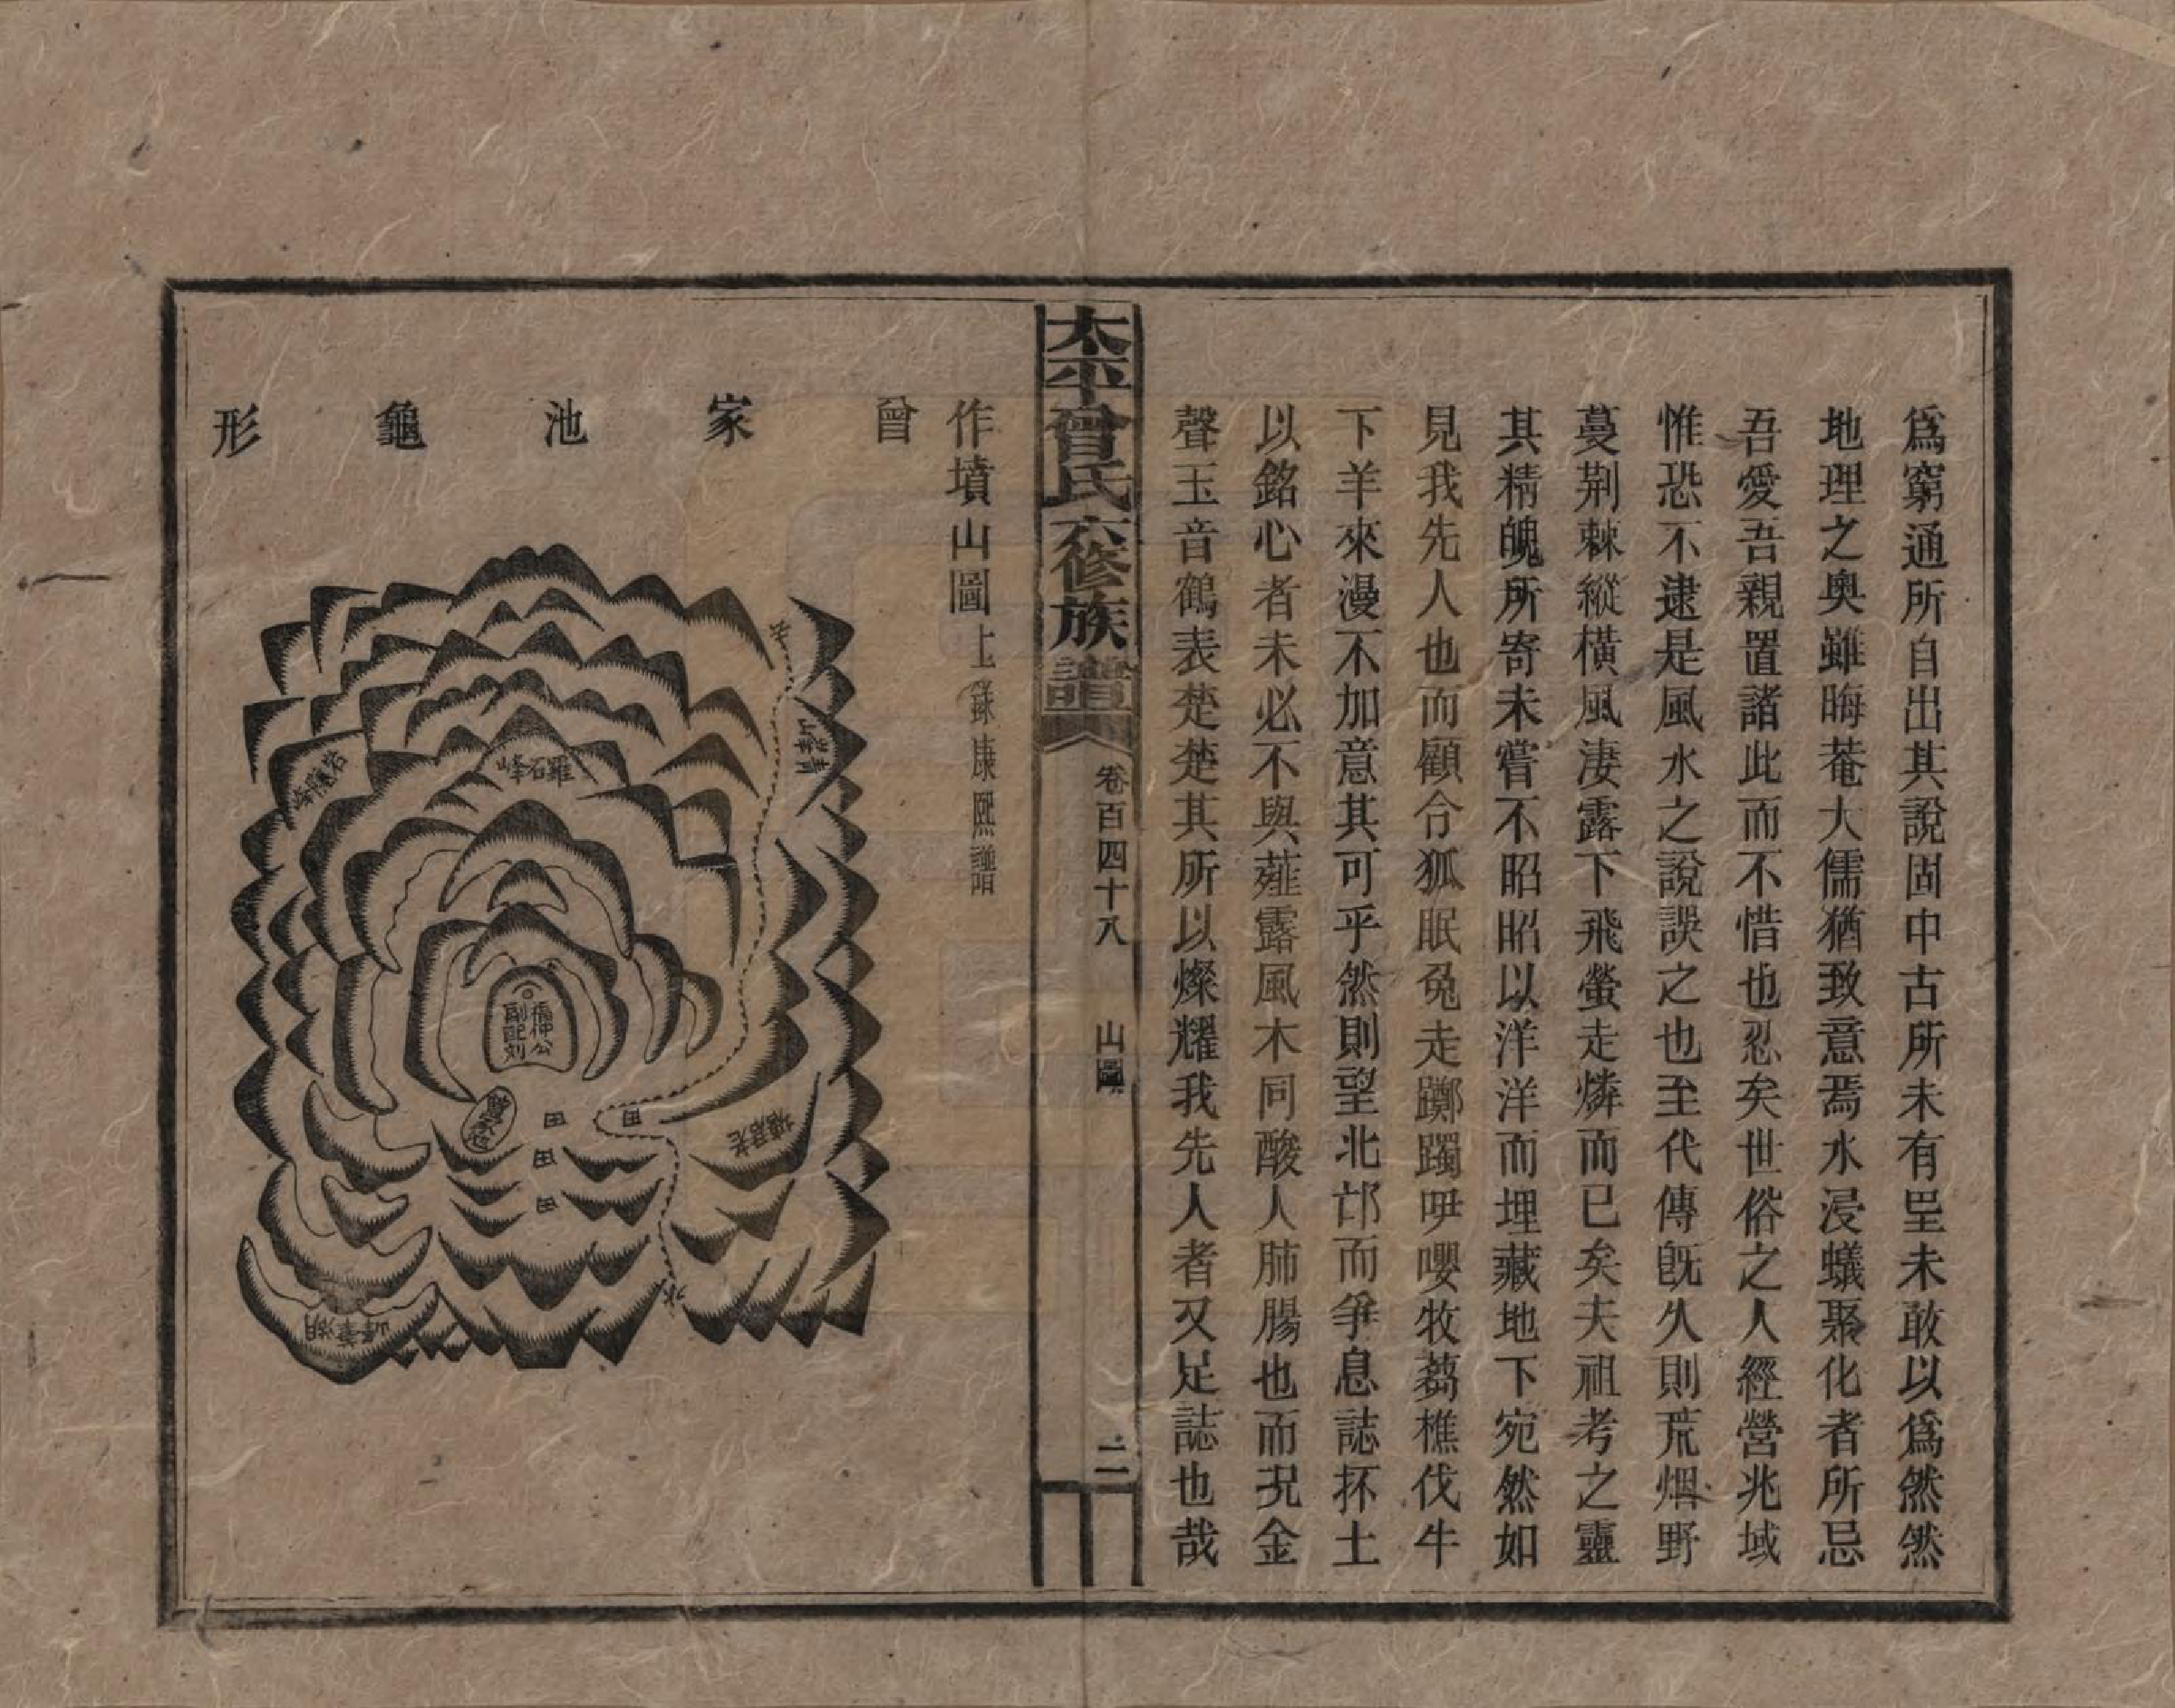 爲窮通所自出其說固中古所未有巫未敢以爲然然
地理之奧雖晦菴大儒猶致意焉水浸蟻聚化者所忌
吾愛吾親置諸此而不惜也忍矣世俗之人經營兆域
惟恐不逮是風水之說誤之也至代傳旣久則荒烟野
蔓荆棘縱橫風淒露下飛螢走燐而已矣夫祖考之靈
其精魄所寄未嘗不昭昭以洋洋而埋藏地下宛然如
見我先人也而顧令狐眠兔走躑躅咿嚶牧蒭樵伐牛
下羊來漫不加意其可乎然則望北邙而爭息誌抔土
以銘心者未必不與薤露風木同酸人肺腸也而况金
聲玉音鶴表楚楚其所以燦耀我先人者又足誌也哉
太平曾氏六修族譜
卷百四十八
山圖
二
作墳山圖上錄康熙譜
曾家池龜形
羅石峰
福仲公
副配刘
曾家池
田
田
田
田
湖華峰
水